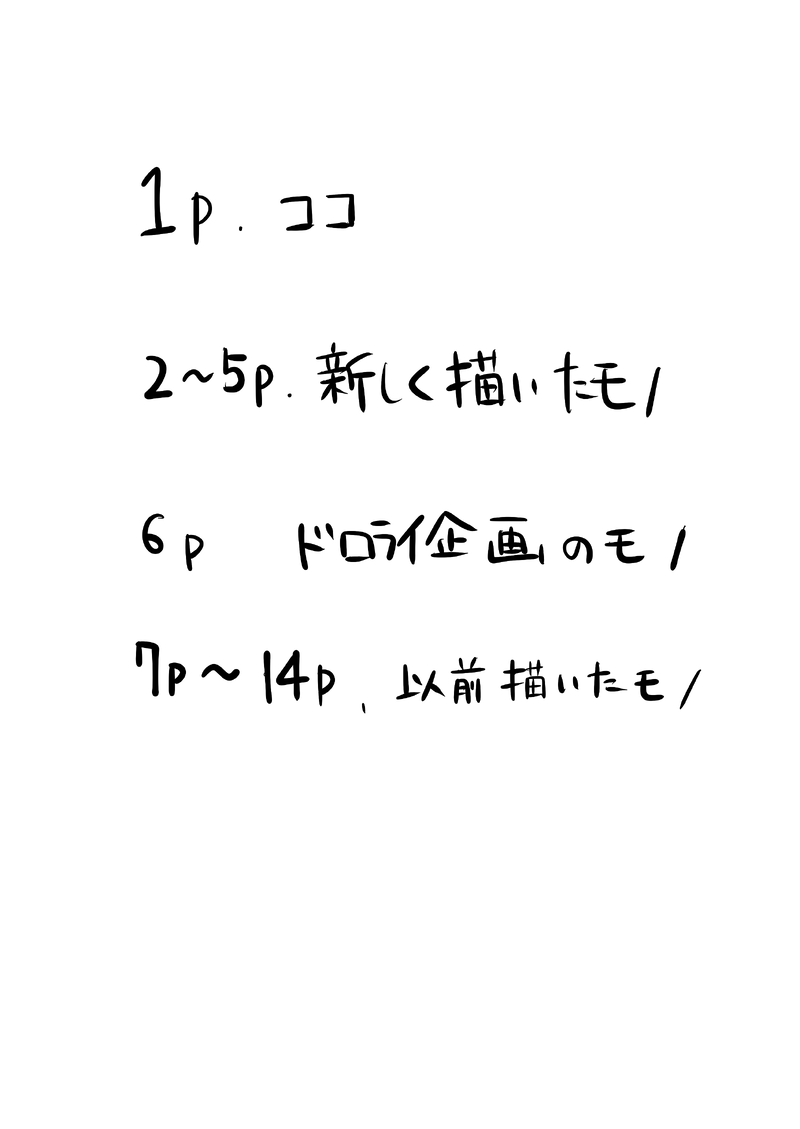 1p. ココ
2~5p. 新しく描いたモノ
6p ドロライ企画のモノ
7p~14p. 以前描いたモノ